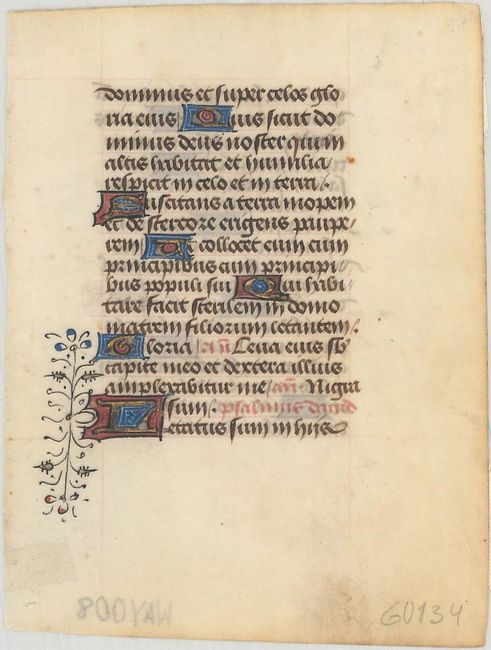 dominus et super celos glo
ria eius Quis sicut do
minus deus noster qui in
altis habitat et humilia
respicit in celo et in terra.
Suscitans a terra inopem
et de stercore erigens paupe/
rem Ut collocet eum cum
principibus cum principi/
bus populi sui Qui habi/
tare facit sterilem in domo
matrem filiorum letantem.
Gloria. an̄. Leva eius sb'
capite meo et dextera illius
amplexabitur me. an̄. Nigra
sum. psalmus david
Letatus sum in hiis
WAY008
G0134